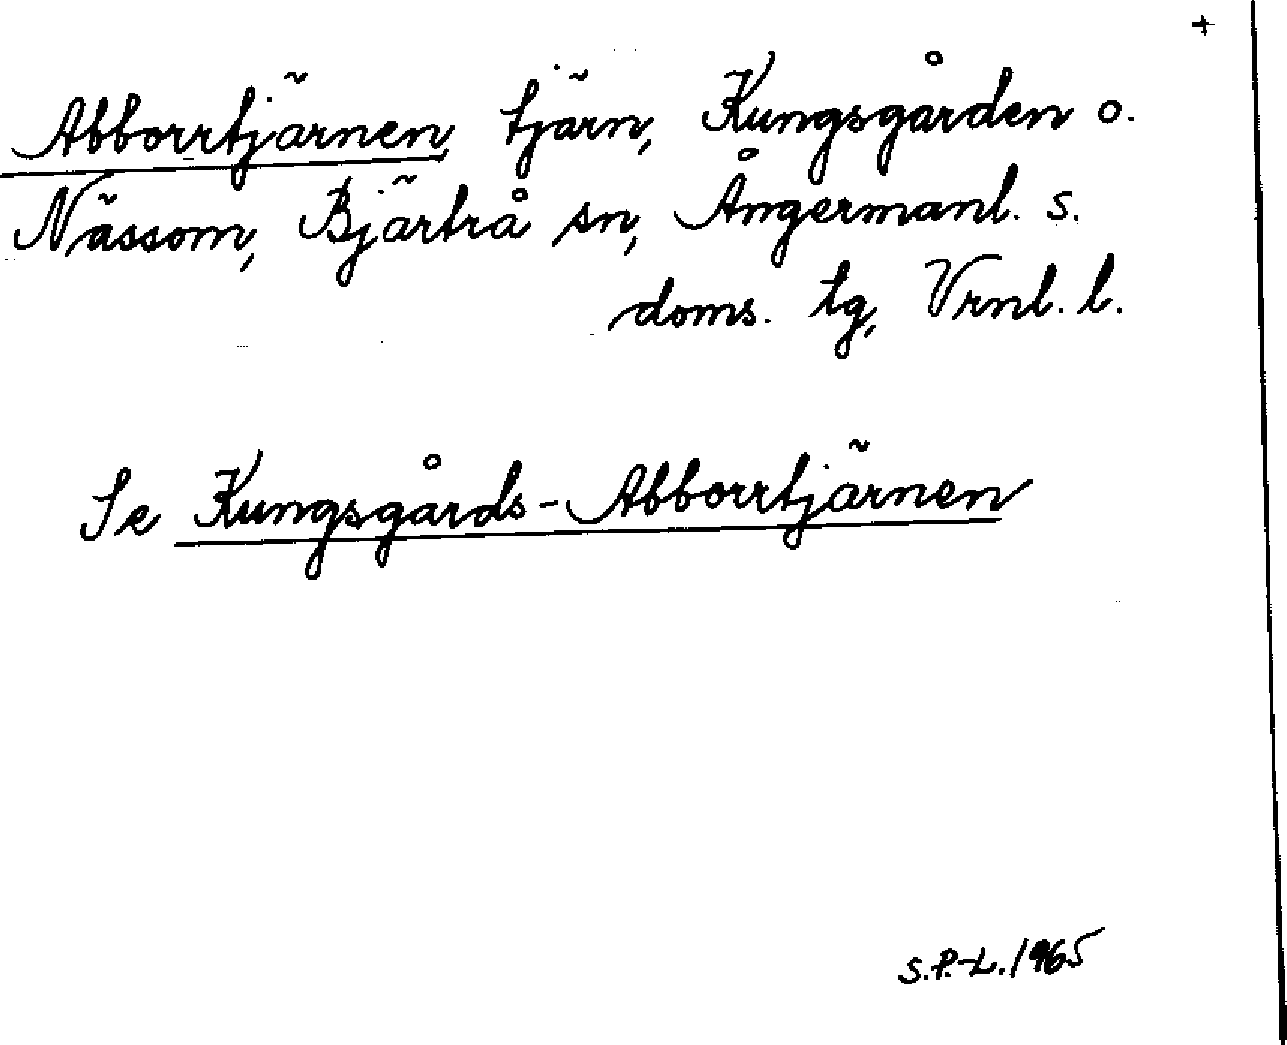 +
Abborrtjärnen, tjärn, Kungsgården o.
Nässom, Bjärtrå sn, Ångermanl. s.
doms. tg, Vrnl. l.
Se Kungsgårds-Abborrtjärnen
S.P.-L. 1965